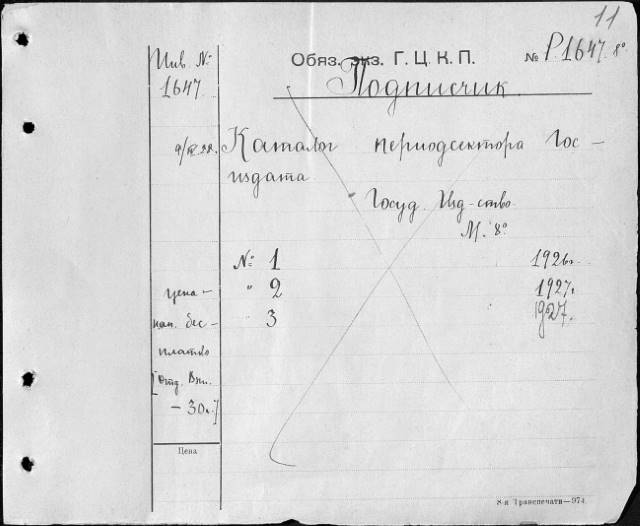 11
Инв. №
1647
Обяз. экз. Г. Ц. К. П. № Р1647 8°
Подписчик
Каталог периодсектора Гос-
издата
Госуд. Изд-ство
М. 8°
№ 1 1926г.
" 2 1927г.
3 1927г.
цена -
нап. бес-
платно
[отд. вып.
- 30к.]
Цена
8-я Транспечати—974